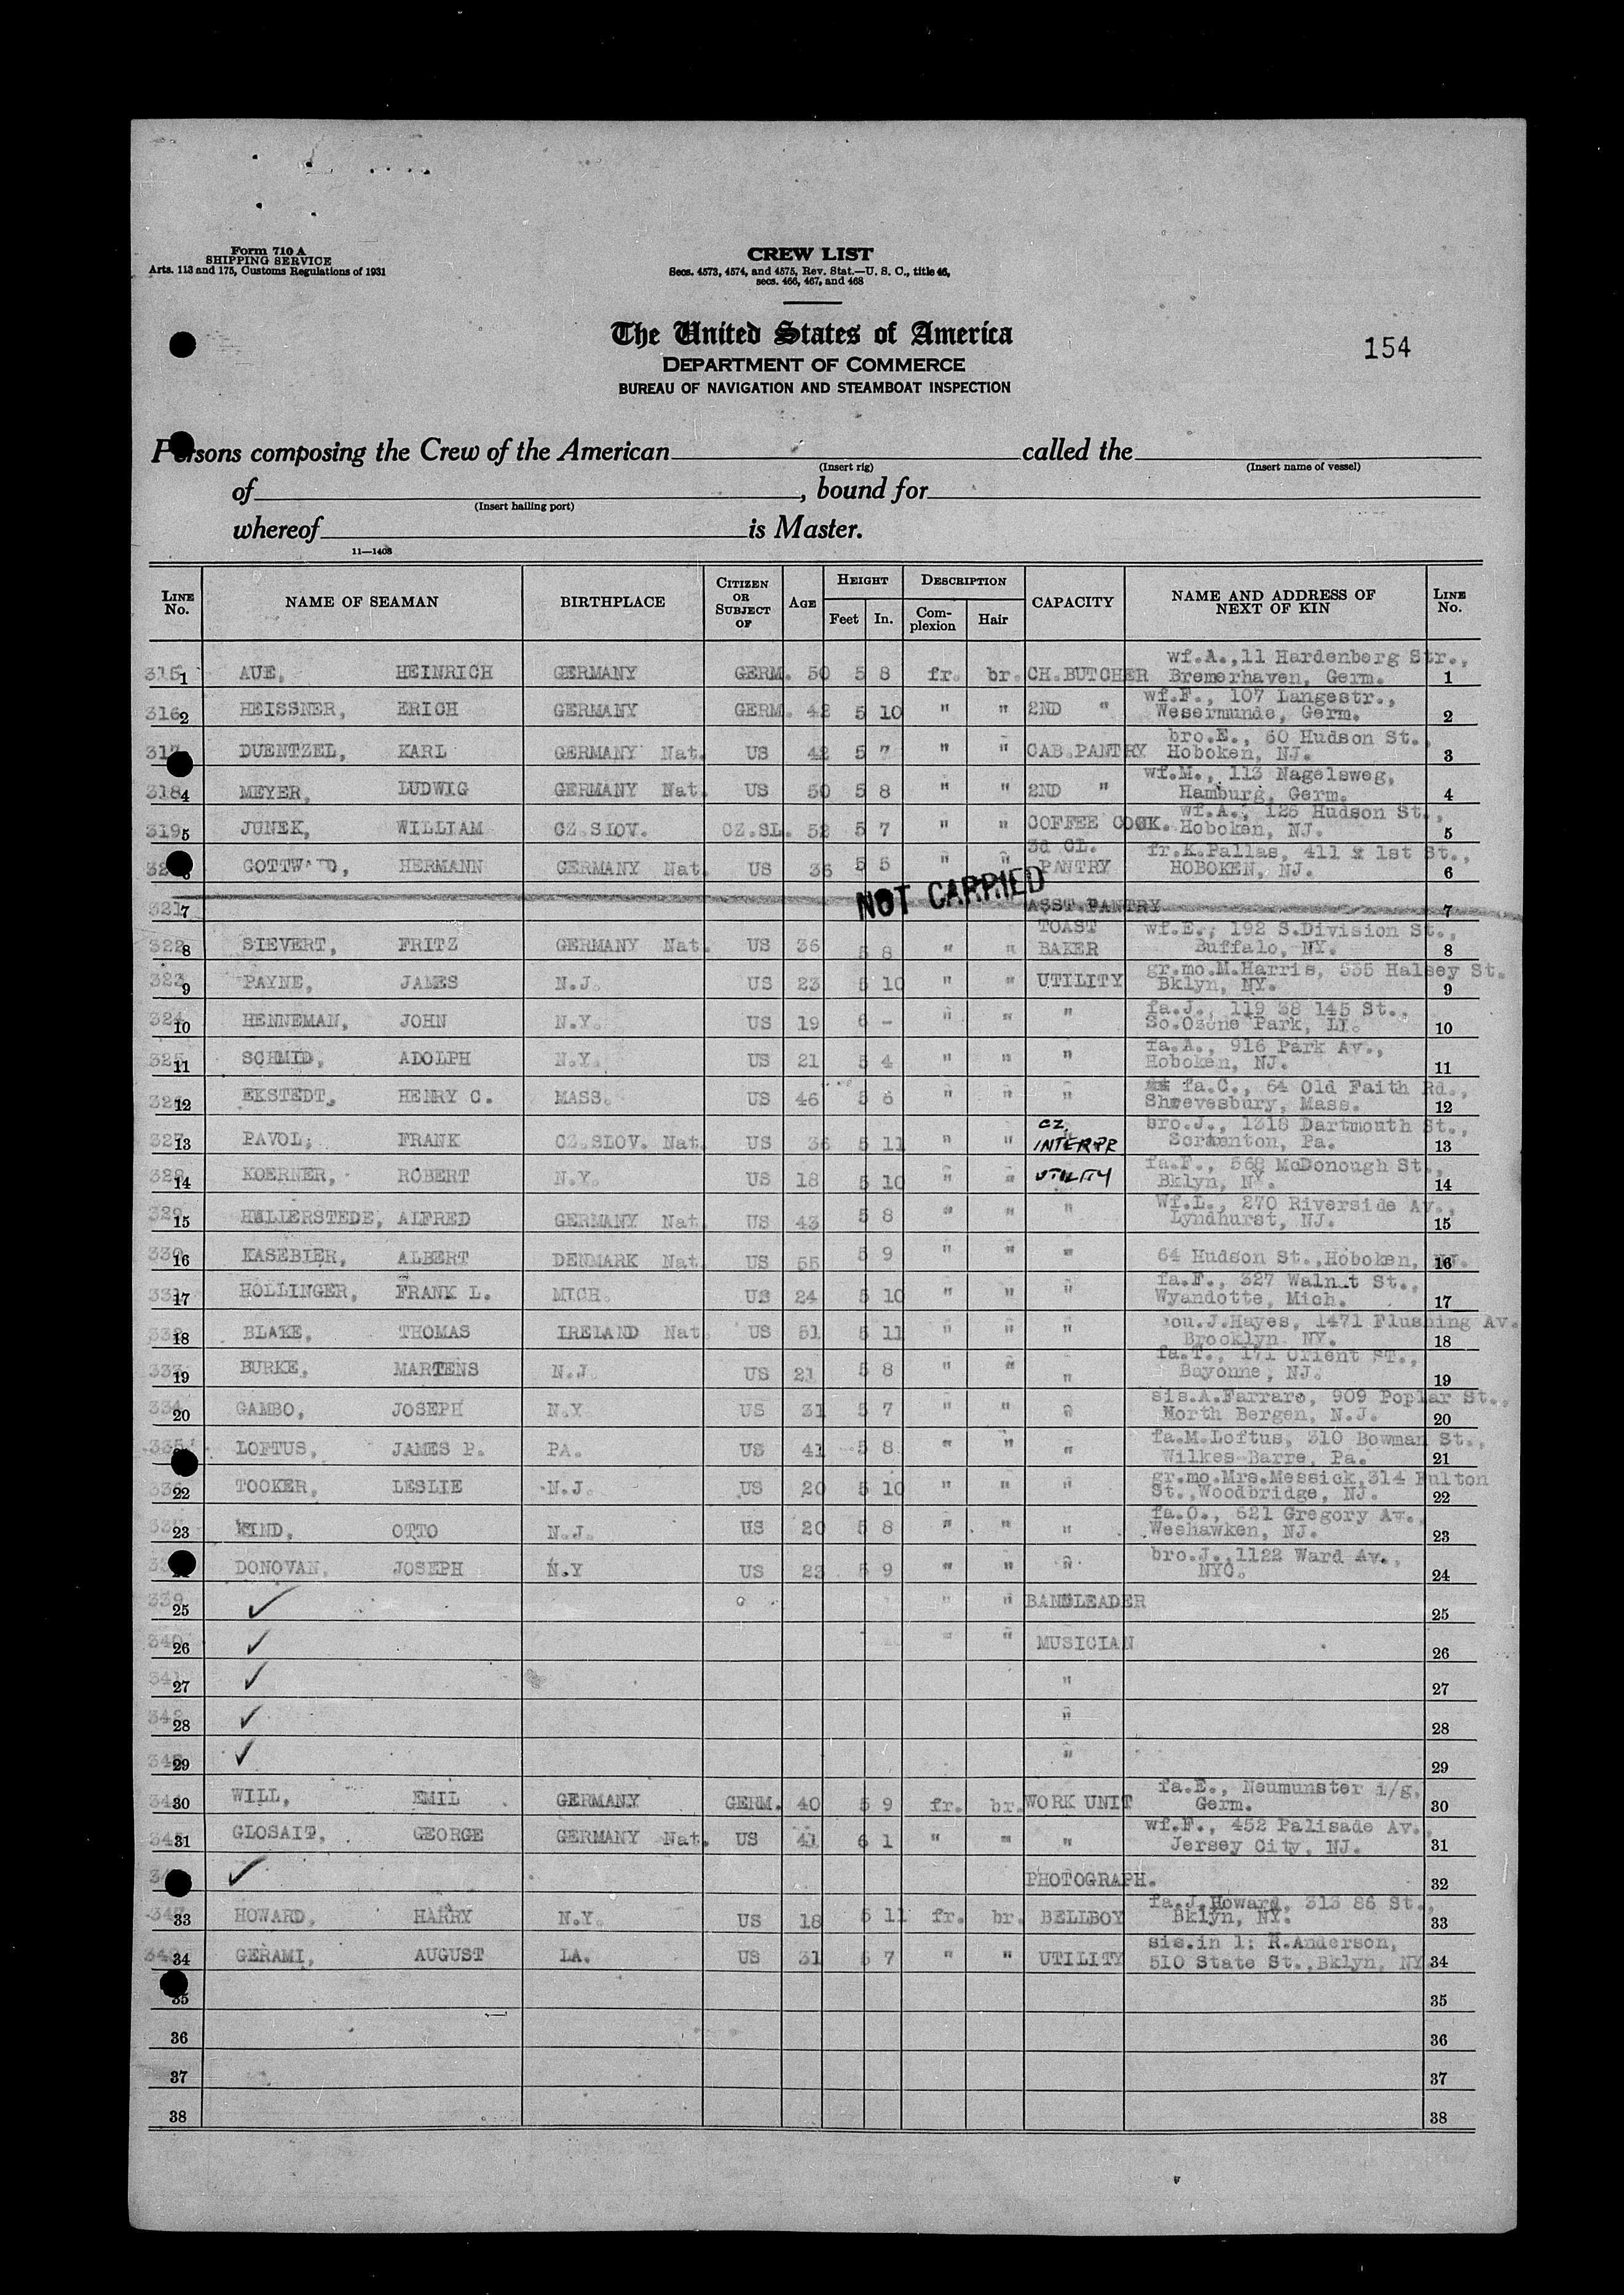 Form 710 A
SHIPPING SERVICE
Arts. 113 and 175, Customs Regulations of 1931
CREW LIST
Secs. 4573, 4574, and 4575, Rev. Stat.—U. S. C., title 46,
secs. 466, 467, and 468
The United States of America
DEPARTMENT OF COMMERCE
BUREAU OF NAVIGATION AND STEAMBOAT INSPECTION
154
Persons composing the Crew of the American called the
(Insert rig) (Insert name of vessel)
of , bound for
(Insert hailing port)
whereof is Master.
11—1408
LINE No. NAME OF SEAMAN BIRTHPLACE CITIZEN OR SUBJECT OF AGE HEIGHT Feet In. DESCRIPTION Complexion Hair CAPACITY NAME AND ADDRESS OF NEXT OF KIN LINE No.
wf.A.,11 Hardenberg Str.,
315 1 AUE, HEINRICH GERMANY GERM. 50 5 8 fr. br. CH.BUTCHER Bremerhaven, Germ. 1
wf.F., 107 Langestr.,
316 2 HEISSNER, ERICH GERMANY GERM. 42 5 10 " " 2ND " Wesermunde, Germ. 2
bro.E., 60 Hudson St.,
317 DUENTZEL, KARL GERMANY Nat. US 42 5 7 " " CAB.PANTRY Hoboken, NJ. 3
wf.M., 113 Nagelsweg,
318 4 MEYER, LUDWIG GERMANY Nat. US 50 5 8 " " 2ND " Hamburg, Germ. 4
wf.A., 126 Hudson St.,
319 5 JUNEK, WILLIAM CZ.SLOV. CZ.SL. 52 5 7 " " COFFEE COOK. Hoboken, NJ. 5
3d CL. fr.K.Pallas, 411 1st St.,
GOTTWALD, HERMANN GERMANY Nat. US 36 5 5 " " PANTRY HOBOKEN, NJ. 6
NOT CARRIED
321 7 ASST.PANTRY 7
TOAST wf.E., 192 S.Division St.,
322 8 SIEVERT, FRITZ GERMANY Nat. US 36 5 8 " " BAKER Buffalo, NY. 8
gr.mo.M.Harris, 535 Halsey St.
323 9 PAYNE, JAMES N.J. US 23 5 10 " " UTILITY Bklyn, NY. 9
fa.J., 119 38 145 St.,
324 10 HENNEMAN, JOHN N.Y. US 19 6 - " " " So.Ozone Park, LI. 10
fa.A., 916 Park Av.,
325 11 SCHMID, ADOLPH N.Y. US 21 5 4 " " " Hoboken, NJ. 11
fa.C., 64 Old Faith Rd.,
326 12 EKSTEDT, HENRY C. MASS. US 46 5 6 " " " Shrevesbury, Mass. 12
CZ. bro.J., 1318 Dartmouth St.,
327 13 PAVOL, FRANK CZ.SLOV. Nat. US 36 5 11 " " INTERPR Scranton, Pa. 13
fa.F., 568 McDonough St.,
328 14 KOERNER, ROBERT N.Y. US 18 5 10 " " UTILITY Bklyn, NY. 14
Wf.L., 270 Riverside Av.,
329 15 HELLERSTEDE, ALFRED GERMANY Nat. US 43 5 8 " " " Lyndhurst, NJ. 15
330 16 KASEBIER, ALBERT DENMARK Nat. US 55 5 9 " " " 64 Hudson St.,Hoboken, NJ. 16
fa.F., 327 Walnut St.,
331 17 HOLLINGER, FRANK L. MICH. US 24 5 10 " " " Wyandotte, Mich. 17
cou.J.Hayes, 1471 Flushing Av.
332 18 BLAKE, THOMAS IRELAND Nat US 51 5 11 " " " Brooklyn NY. 18
fa.T., 171 Orient ST.,
333 19 BURKE, MARTENS N.J. US 21 5 8 " " " Bayonne, NJ. 19
sis.A.Farraro, 909 Poplar St.,
334 20 GAMBO, JOSEPH N.Y. US 31 5 7 " " " North Bergen, N.J. 20
fa.M.Loftus, 310 Bowman St.,
335 LOFTUS, JAMES P. PA. US 41 5 8 " " " Wilkes-Barre, Pa. 21
gr.mo.Mrs.Messick,314 Fulton
336 22 TOOKER, LESLIE N.J. US 20 5 10 " " " St.,Woodbridge, NJ. 22
fa.O., 621 Gregory Av.,
337 23 WIND, OTTO N.J. US 20 5 8 " " " Weehawken, NJ. 23
bro.J.,1122 Ward Av.,
DONOVAN, JOSEPH N.Y US 23 5 9 " " " NYC. 24
339 25 ✓ " " BANDLEADER 25
340 26 ✓ " " MUSICIAN 26
341 27 ✓ " 27
342 28 ✓ " 28
343 29 ✓ " 29
fa.E., Neumunster i/g,
344 30 WILL, EMIL GERMANY GERM. 40 5 9 fr. br. WORK UNIT Germ. 30
wf.F., 452 Palisade Av.,
345 31 GLOSAIT, GEORGE GERMANY Nat. US 41 6 1 " " " Jersey City, NJ. 31
✓ PHOTOGRAPH. 32
fa.J.Howard, 313 86 St.,
347 33 HOWARD, HARRY N.Y. US 18 5 11 fr. br. BELLBOY Bklyn, NY. 33
sis.in l: R.Anderson,
348 34 GERAMI, AUGUST LA. US 31 5 7 " " UTILITY 510 State St.,Bklyn, NY 34
35 35
36 36
37 37
38 38